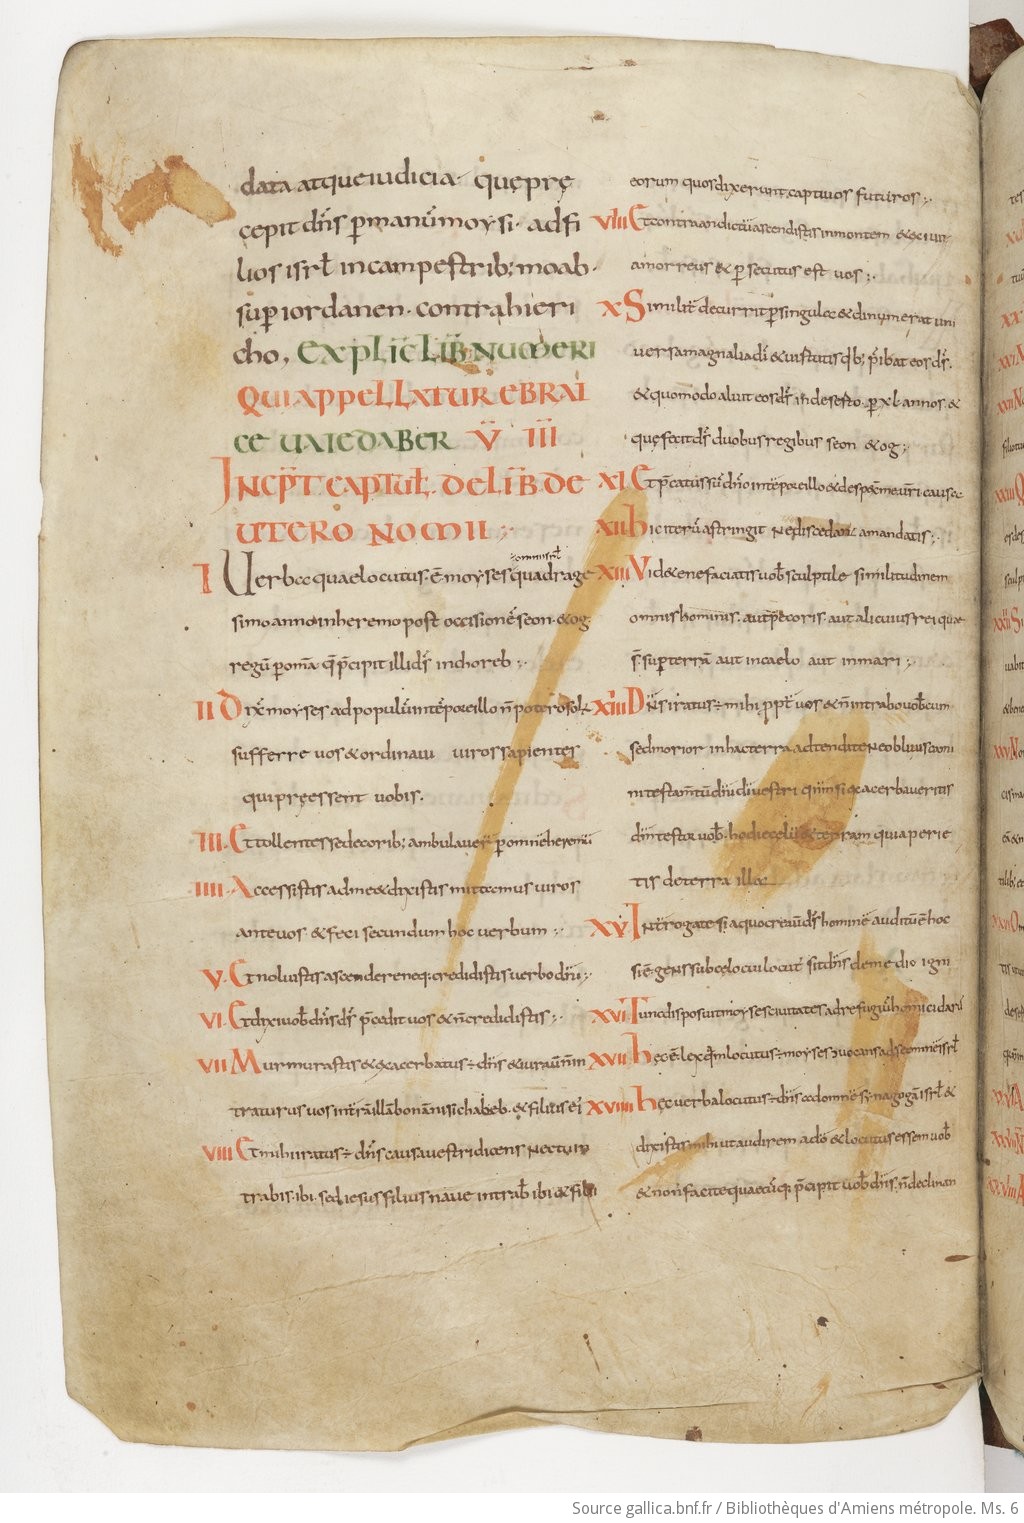 data atque iudicia. quę prę
cepit dn̄s p manū moysi. ad fi
lios isrł in campestrib; moab.
sup iordanen. contra hieri
cho, EXPLIC LIB NUMERI
QUI APPELLATUR EBRAI
CE UAIEDABER V IIII
INCPT CAPITUL. DE LIB DE
UTERO NOMII
ad omnem isrł
I Uerba quae locutus ē moyses quadrage
simo anno in heremo post occisionē seon & og
regū &
II Dix̄ moyses ad populū in tēpore illo n̄ potero solus
sufferre uos & ordinaui uiros sapientes
qui pręessent uobis.
III. Et tollentes sede corib; ambulauer̄ p omnē heremū
IIII. Accessistis ad me & dixistis mittamus uiros
ante uos & feci secundum hoc uerbum
V. Et noluistis ascendere neq; credidistis uerbo dn̄i
VI. Et dixi uob dn̄s ds̄ p̄cedit uos & n̄ credidistis
VII Murmurastis & exacerbatus ÷ dn̄s & iurauit n̄ in
traturus uos in trā illā bonā nisi chaleb. & filius ei
VIII Et mihi iratus ÷ dn̄s causa uestri dicens nec tu in
trabis ibi. sed iesus filius naue intrab ibi & filii
eorum quos dixerunt captiuos futuros
VIIII Et contra ascendistis in montem & exiuit
amorreus & psecutus est uos
X Similit̄ decurrit p singula & dinumerat uni
uersa magnalia dī & uirtutis qb; p̄ibat eos ds̄.
& quomodo aluit eos ds̄ in deserto. p xl annos. &
quę fecit ds̄ duobus regibus seon & og
XI Et p̄catus sū dn̄o in tēpore illo &
XII hic iterū astringit ne discedant a mandatis
XIII Vid&e ne faciatis uob sculptile similitudinem
omnis hominis. aut pecoris. aut alicuius rei quae
s̄. sup terrā aut in caelo aut in mari
XIIII Dn̄s iratus ÷ mihi ppt̄ uos & n̄ intrabo uobcum
sed morior in hac terra adtendite ne obliuiscamini
testamtū dn̄i dī uestri
testor uob. hodie celū & terram quia perie
tis de terra illa
XV Int̄rogate si a quo creauit ds̄ hominē auditū ē hoc
si ē gens sub celo cui locut̄ sit dn̄s de medio igni
XVI Tunc disposuit moyses ciuitates ad refugiū homicidarū
XVII hęc ē lex quam locutus ÷ moyses uocans ad se omnē isrł
XVIII hęc uerba locutus ÷ dn̄s ad omnē synagogā isrł &
dixistis mihi ut audirem a dō & locutus essem uob
& non facite quaecūq; p̄cipit uob dn̄s. n̄ declinan
Source gallica.bnf.fr / Bibliothèques d'Amiens métropole. Ms. 6